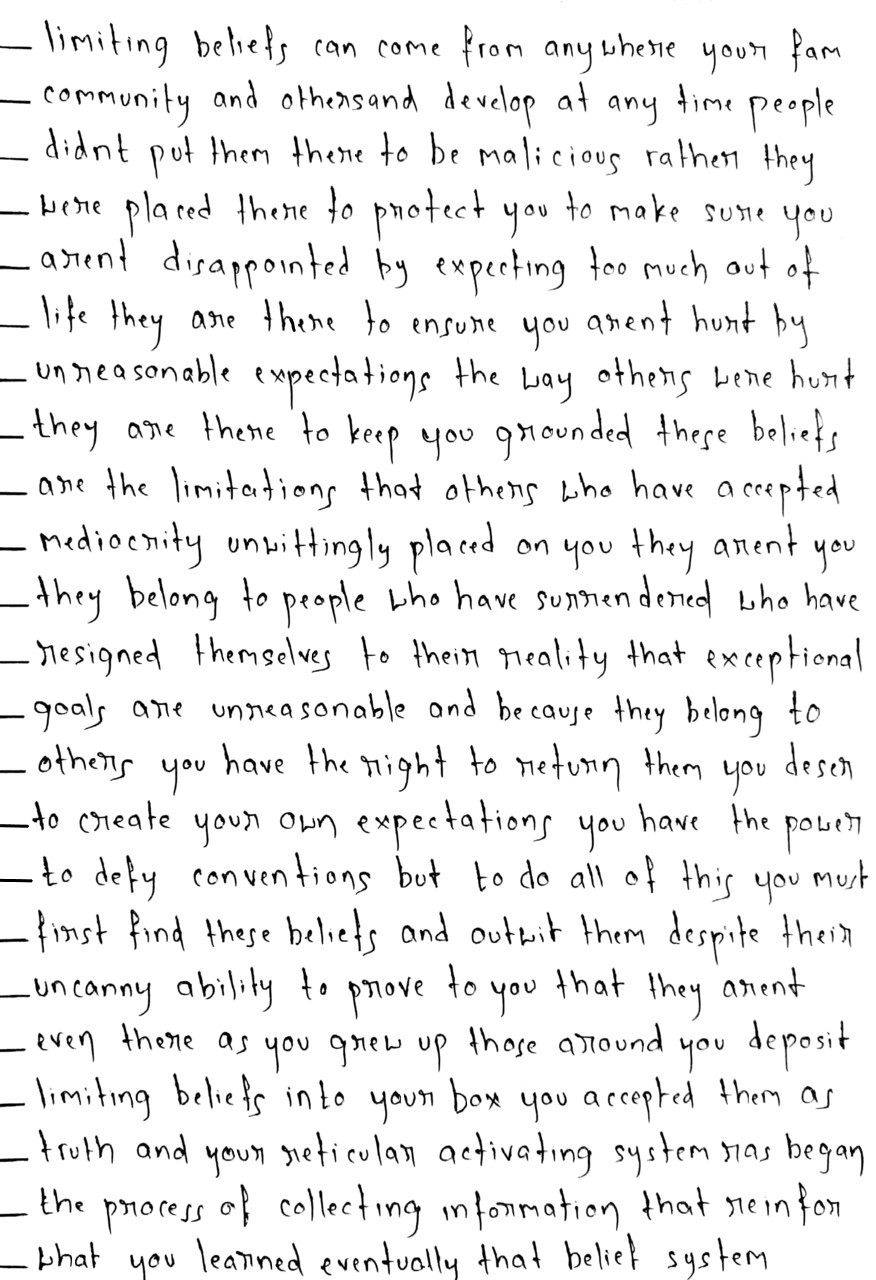 limiting beliefs can come from anywhere your fam
community and othersand develop at any time people
didnt put them there to be malicious rather they
were placed there to protect you to make sure you
arent disappointed by expecting too much out of
life they are there to ensure you arent hurt by
unreasonable expectations the way others were hurt
they are there to keep you grounded these beliefs
are the limitations that others who have accepted
mediocrity unwittingly placed on you they arent you
they belong to people who have surrendered who have
resigned themselves to their reality that exceptional
goals are unreasonable and because they belong to
others you have the right to return them you deser
to create your own expectations you have the power
to defy conventions but to do all of this you must
first find these beliefs and outwit them despite their
uncanny ability to prove to you that they arent
even there as you grew up those around you deposit
limiting beliefs into your box you accepted them as
truth and your reticular activating system ras began
the process of collecting information that reinfor
what you learned eventually that belief system